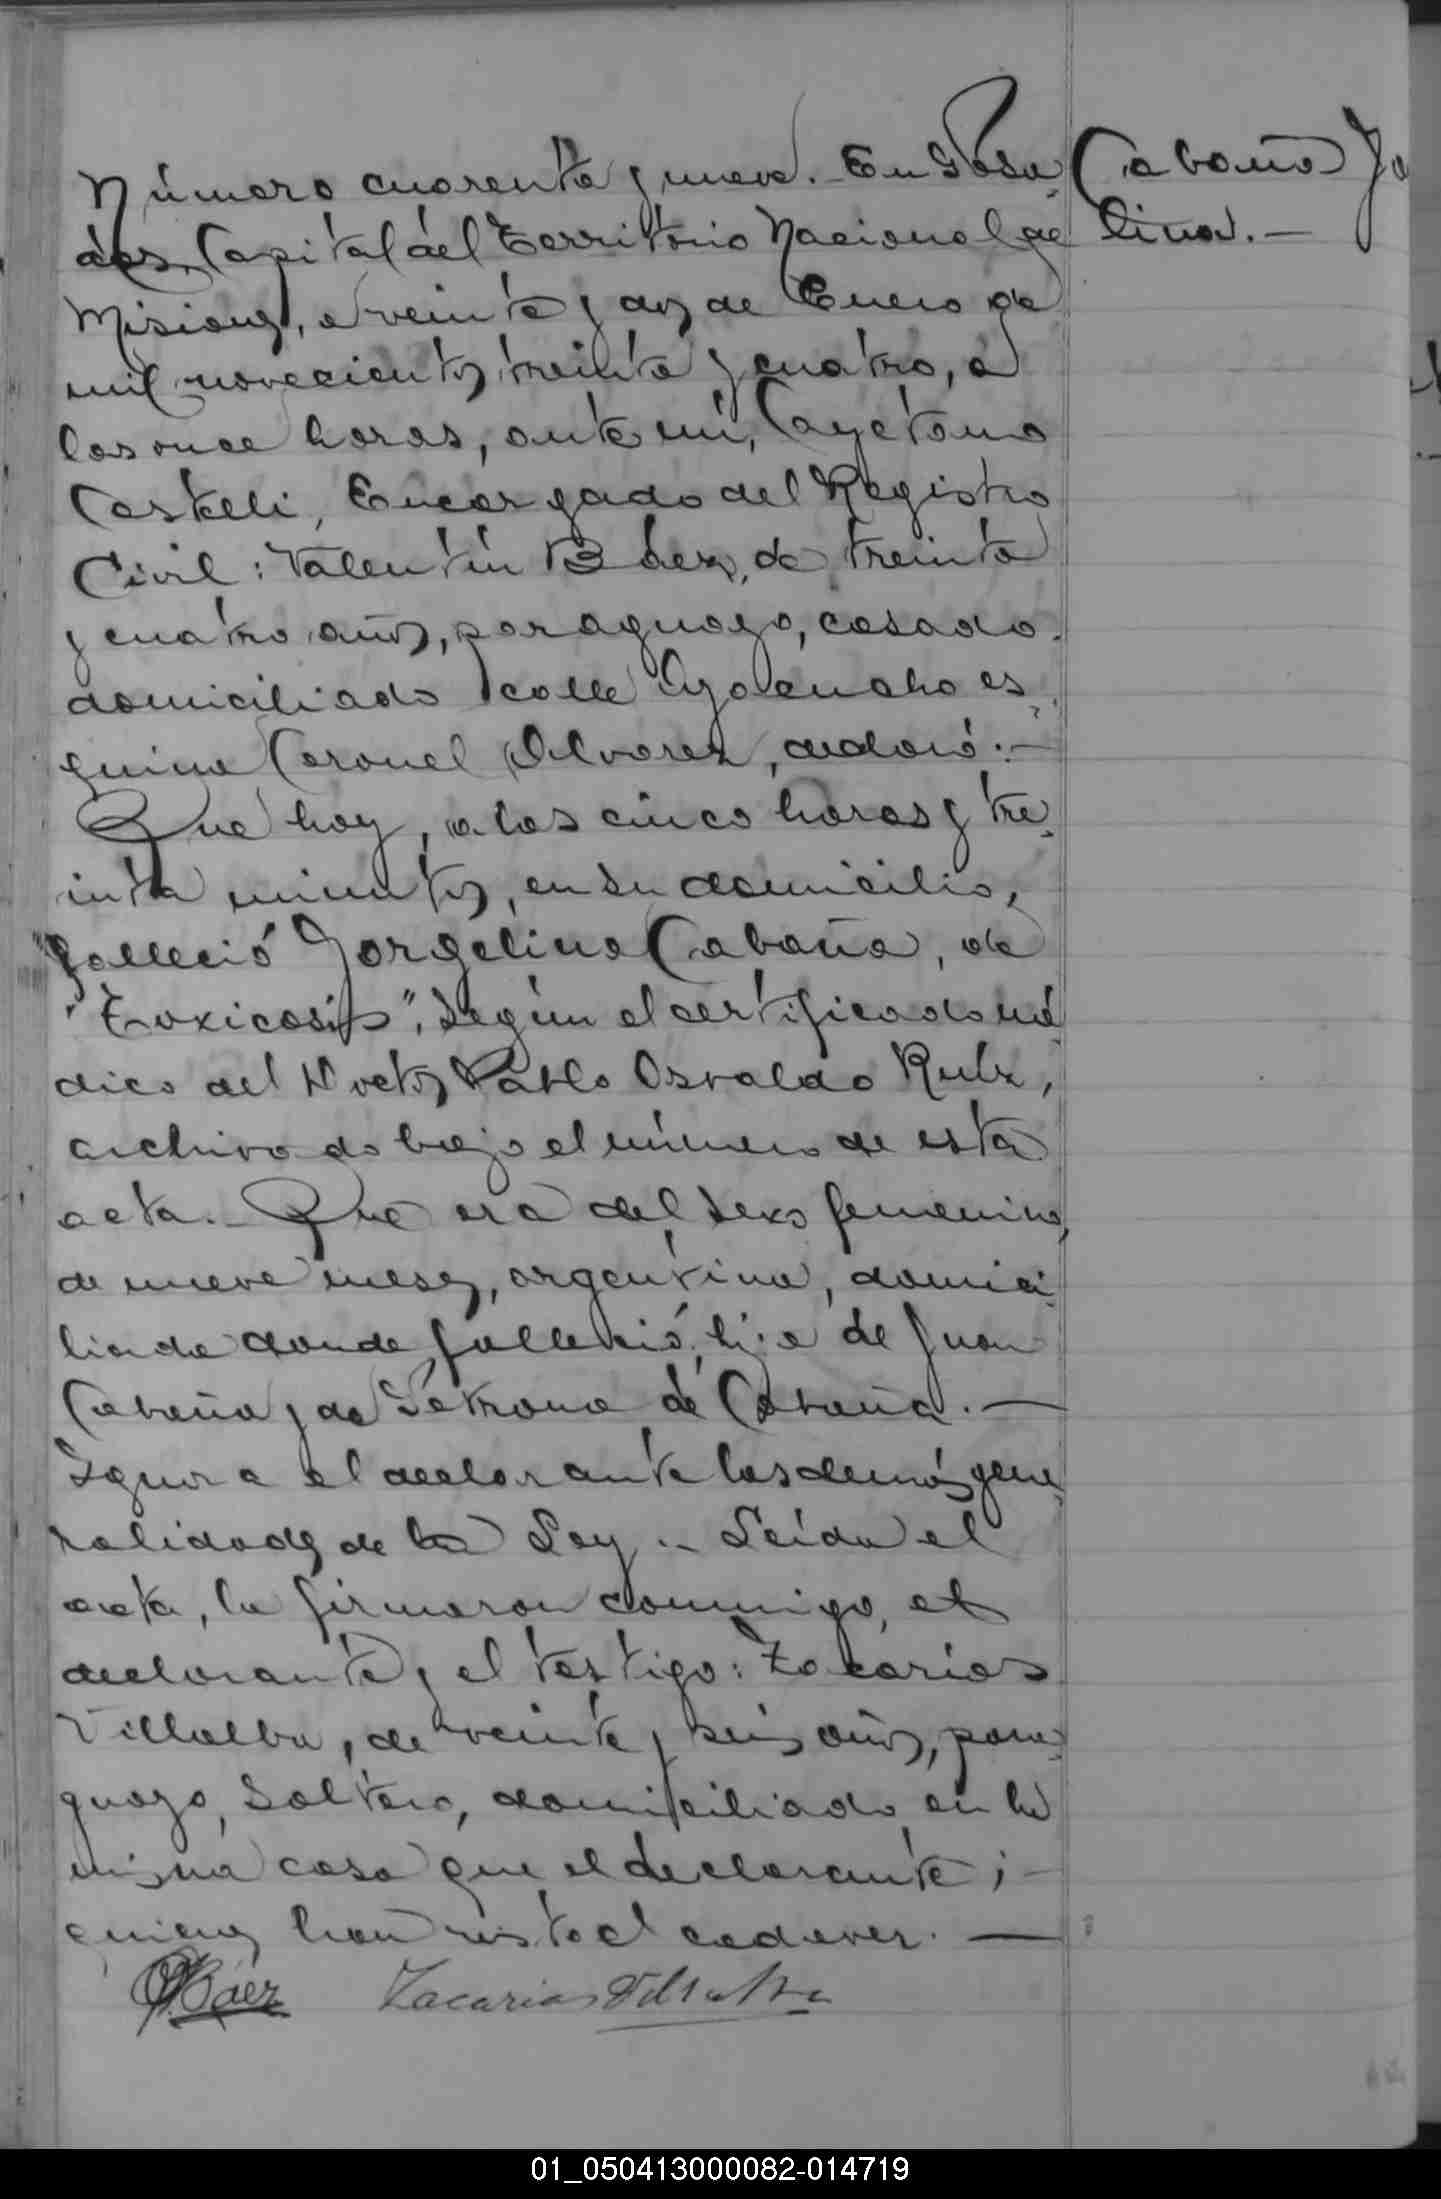 Número cuarenta y nueve. En Posa-
das, Capital del Territorio Nacional de
Misiones, a veinte y dos de Enero de
mil novecientos treinta y cuatro, a
las once horas, ante mí, Cayetano
Castelli, Encargado del Registro
Civil: Valentín Báez, de treinta
y cuatro años, paraguayo, casado,
domiciliado calle Ayacucho es-
quina Coronel Alvarez, declaró:—
Que hoy, a las cinco horas y tre-
inta minutos, en su domicilio,
falleció Jorgelina Cabaña, de
"Toxicosis", según el certificado mé-
dico del Doctor Pablo Osvaldo
archivado bajo el número de esta
acta.- Que era del sexo femenino,
de nueve meses, argentina, domici-
liada donde falleció, hija de Juan
Cabaña y de Petrona de Cabaña.—
Ignora el declarante las demás gene-
ralidades de la Ley.- Leída el
acta, la firmaron conmigo, el
declarante y el testigo: Zacarías
Villalba, de veinte y seis años, para-
guayo, soltero, domiciliado en la
misma casa que el declarante;-
quienes han visto el cadaver.—
Báez Zacarias Villalba
Cabaña Jo
lina.—
01_050413000082-014719